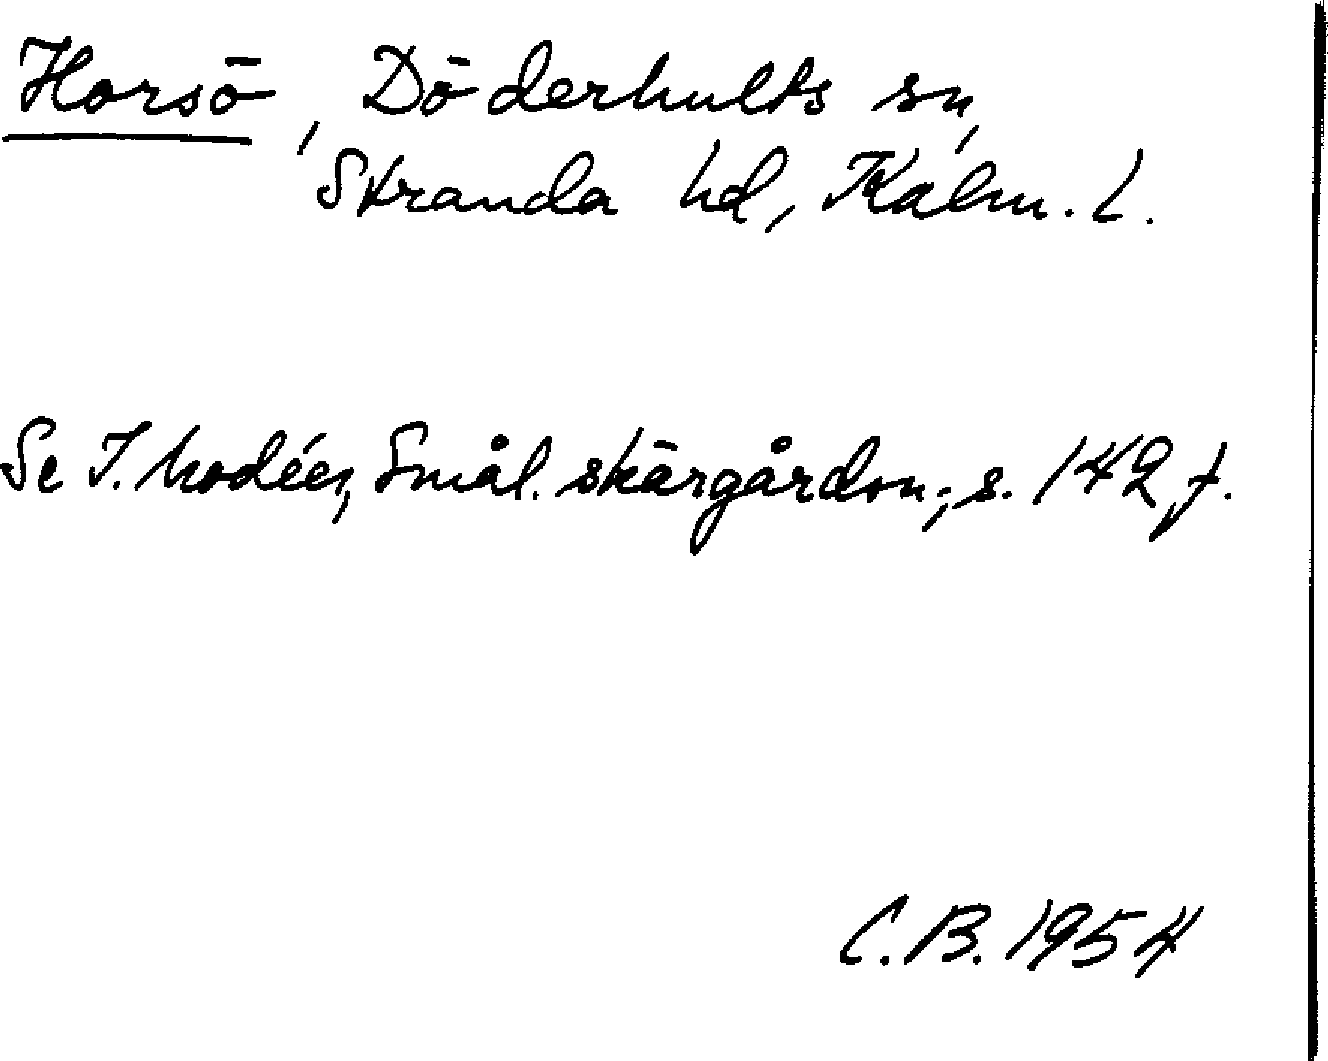 Horsö, Döderhults sn,
Stranda hd, Kalm. L.
Se I. Modéer, Smål. skärgårdsn., s. 142 f.
C.B. 1954